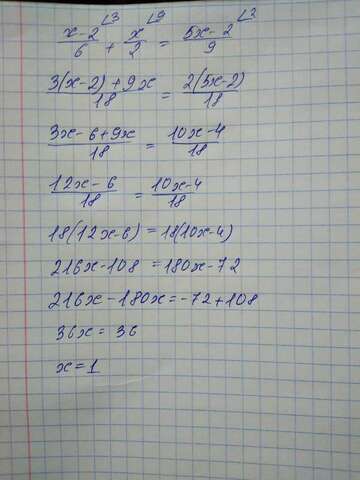 (x-2)/6 ∠3 + x/2 ∠9 = (5x-2)/9 ∠2
(3(x-2)+9x)/18 = 2(5x-2)/18
(3x-6+9x)/18 = (10x-4)/18
(12x-6)/18 = (10x-4)/18
18(12x-6) = 18(10x-4)
216x-108 = 180x-72
216x-180x=-72+108
36x = 36
x=1